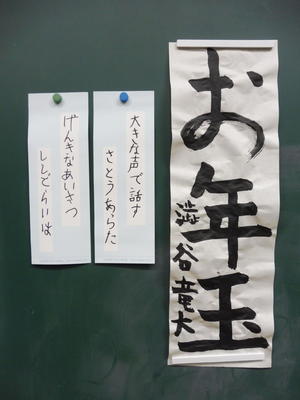 お年玉
澁谷竜大
大きな声で話す
さとうあらた
げんきなあいさつ
ししどらいは